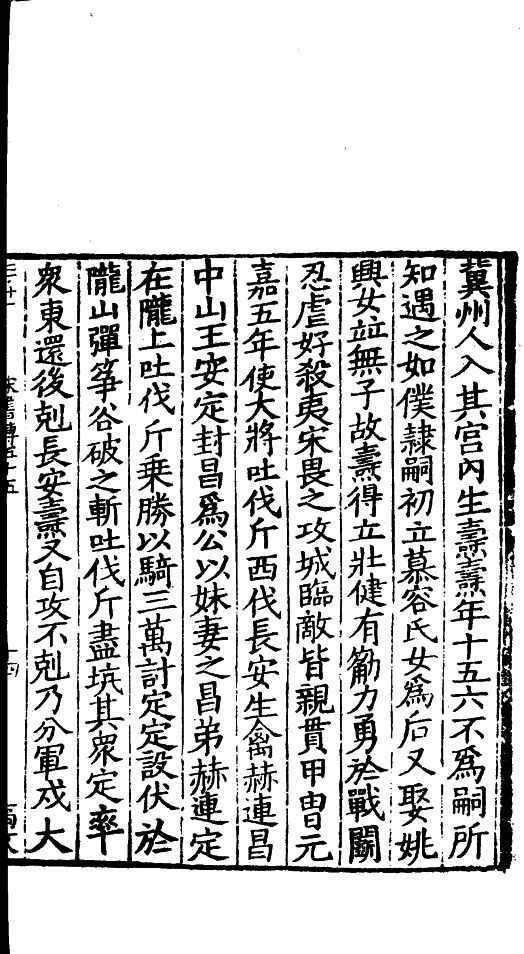 冀州人入其宮內生燾燾年十五六不爲嗣所
知遇之如僕隷嗣初立慕容氏女爲后又娶姚
興女竝無子故燾得立壯健有筋力勇於戰鬬
忍虐好殺夷宋畏之攻城臨敵皆親貫甲胄元
嘉五年使大將吐伐斤西伐長安生禽赫連昌
中山王安定封昌爲公以妹妻之昌弟赫連定
在隴上吐伐斤乗勝以騎三萬討定定設伏於
隴山彈筝谷破之斬吐伐斤盡坑其衆定率
衆東還後剋長安燾又自攻不剋乃分軍戍大
宋書傳五十五